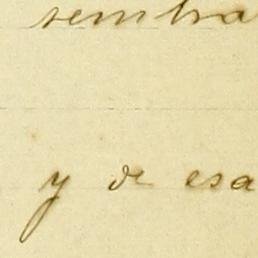 sembra
y de esa